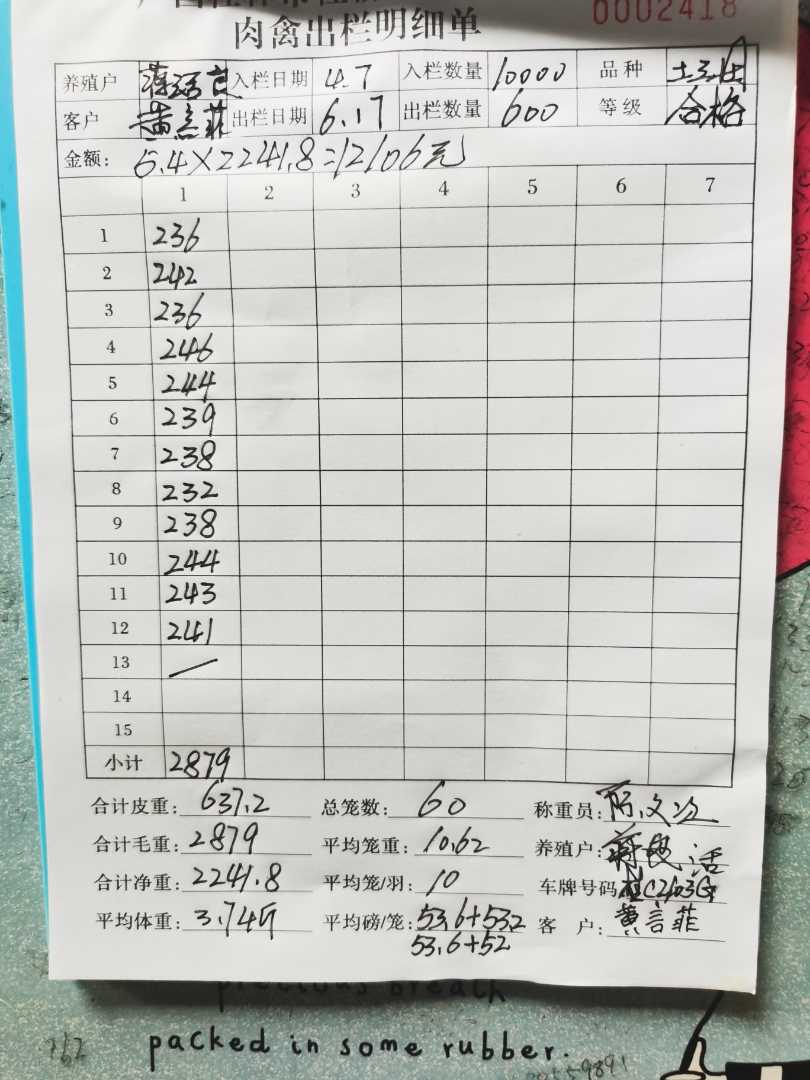 0002418
肉禽出栏明细单
养殖户 入栏日期 4.7 入栏数量 10000 品种
客户 黄言菲 出栏日期 6.17 出栏数量 600 等级 合格
金额: 5.4×2241.8=12106元
1 2 3 4 5 6 7
1 236
2 242
3 236
4 246
5 244
6 239
7 238
8 232
9 238
10 244
11 243
12 241
13 /
14
15
小计 2879
合计皮重: 637.2 总笼数: 60 称重员:
合计毛重: 2879 平均笼重: 10.62 养殖户:
合计净重: 2241.8 平均笼/羽: 10 车牌号码
平均体重: 3.74斤 平均磅/笼: 53.6+53.2 客 户: 黄言菲
53.6+52
precious breath
packed in some rubber.